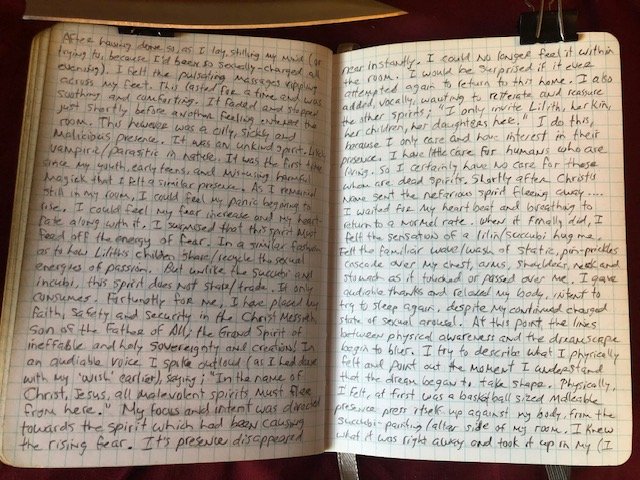 After having done so, as I lay, stilling my mind (or
trying to, because I'd been so sexually-charged all
evening). I felt the pulsating massages rippling
across my feet. This lasted for a time and was
soothing and comforting. It faded and stopped
just shortly before another feeling entered the
room. This however was a cold, sickly and
Malicious presence. It was an unkind spirit. Likely
vampiric/parasitic in nature. It was the first time
since my youth, early teens, and misusing harmful
Magick that I felt a similar presence. As I remained
still in my room, I could feel my panic begining to
rise. I could feel my fear increase and my heart-
rate along with it. I surmised that this spirit must
feed off the energy of fear. In a similar fashion
as to how Lilith's children share/recycle the sexual
energies of passion. But unlike the succubi and
incubi, this spirit does not share/trade. It only
consumes. Fortunatly for me, I have placed my
Faith, Safety and security in the Christ Messiah,
son of the Father of All, the Grand Spirit of
ineffable and holy sovereignty and creation! In
an audiable voice I spoke outloud (as I had done
with my 'wish' earlier), saying; "In the name of
Christ, Jesus, all malevolent spirits must flee
from here." My focus and intent was directed
towards the spirit which had been causing
the rising fear. It's presence disappeared
near instantly. I could no longer feel it within
the room. I would be surprised if it ever
attempted again to return to this home. I also
added, vocally, wanting to reiterate and reassure
the other spirits; "I only invite Lilith, her kin,
her children, her daughters here." I do this,
because I only care and have interest in their
presence. I have little care for humans who are
living. So I certainly have no care for those
whom are dead spirits. Shortly after Christ's
Name sent the nefarious spirit fleeing away....
I waited for my heart beat and breathing to
return to a normal rate. When it finally did, I
felt the sensation of a lilin/succubi hug me.
Felt the familiar wave/wash of static, pin-prickles
cascade over my chest, arms, shoulders, neck and
stomach as it touched or passed over me. I gave
audiable thanks and relaxed my body, intent to
try to sleep again, despite my continued charged
state of sexual arousal. At this point, the lines
between physical awareness and the dreamscape
begin to blur. I try to describe what I physically
felt and point out the moment I understand
that the dream began to take shape. Physically,
I felt, at first was a basketball sized malleable
presence press itself up against my body, from the
succubi-painting/altar side of my room. I knew
what it was right away and took it up in my (I